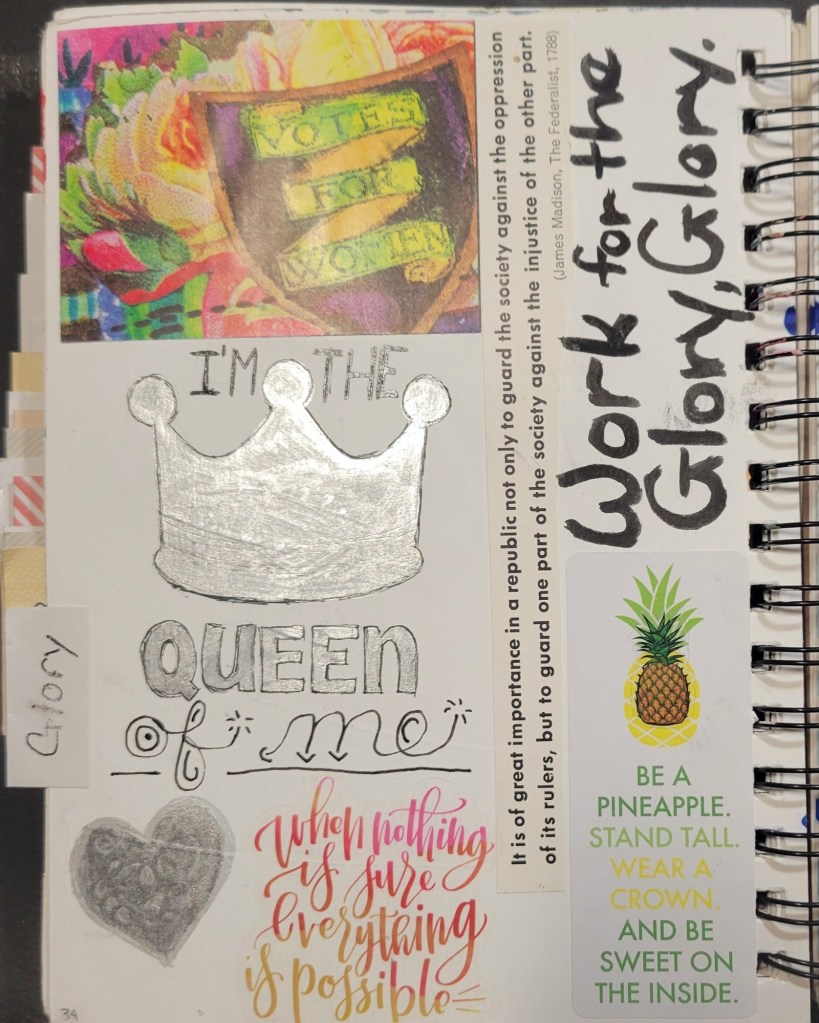 VOTES
FOR
WOMEN
I'M THE
QUEEN
of me
Glory
When nothing
is sure
Everything
is possible
39
It is of great importance in a republic not only to guard the society against the oppression
of its rulers, but to guard one part of the society against the injustice of the other part.
(James Madison, The Federalist, 1788)
Work for the
Glory, Glory.
BE A
PINEAPPLE.
STAND TALL.
WEAR A
CROWN.
AND BE
SWEET ON
THE INSIDE.